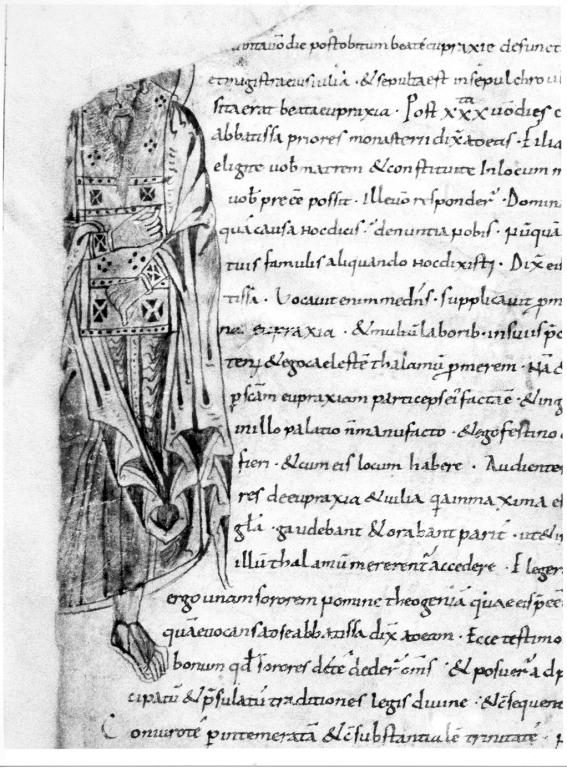 die post obitum beate eupraxie defunct
et magistra eius iulia · & sepulta est in sepulchro u
sita erat beata eupraxia · Post xxx ta uo dies c
abbatissa priores monasterii dix̄ ad eas · Filia
eligite uob matrem & constituite In locum m
uob preesse possit · Ille uō responder · Domin
qua causa hoc dicis · denuntia nobis · nūquā
tuis famulis aliquando hoc dixisti · Dix̄ eis
tissa · Uocauit enim me dn̄s · supplicauit p̄ m
eupraxia · & multū laborib · in suuis
& ego caelestē thalamū p̄merem · Nā &
p̄ scām eupraxiam particeps ei facta ē · & ing
in illo palatio n̄ manufacto · & ego festino
fieri · & cum eis locum habere · Audiente
res de eupraxia & iulia q̄a in maxima e
gl̄a · gaudebant & orabant parit · ut & i
illū thalamū mererent accedere · Eleger
ergo unam sororem nomine theogeniā quae eis
quā euocans ad se abbatissa dix̄ ad eam · Ecce testimo
bonum qd̄ sorores de te deder oms̄ · & posuer a d
cipatū & p̄sulatū traditiones legis diuine · & c̄sequent
Coniuro te p̄ intemeratā & c̄substantialē trinitatē ·